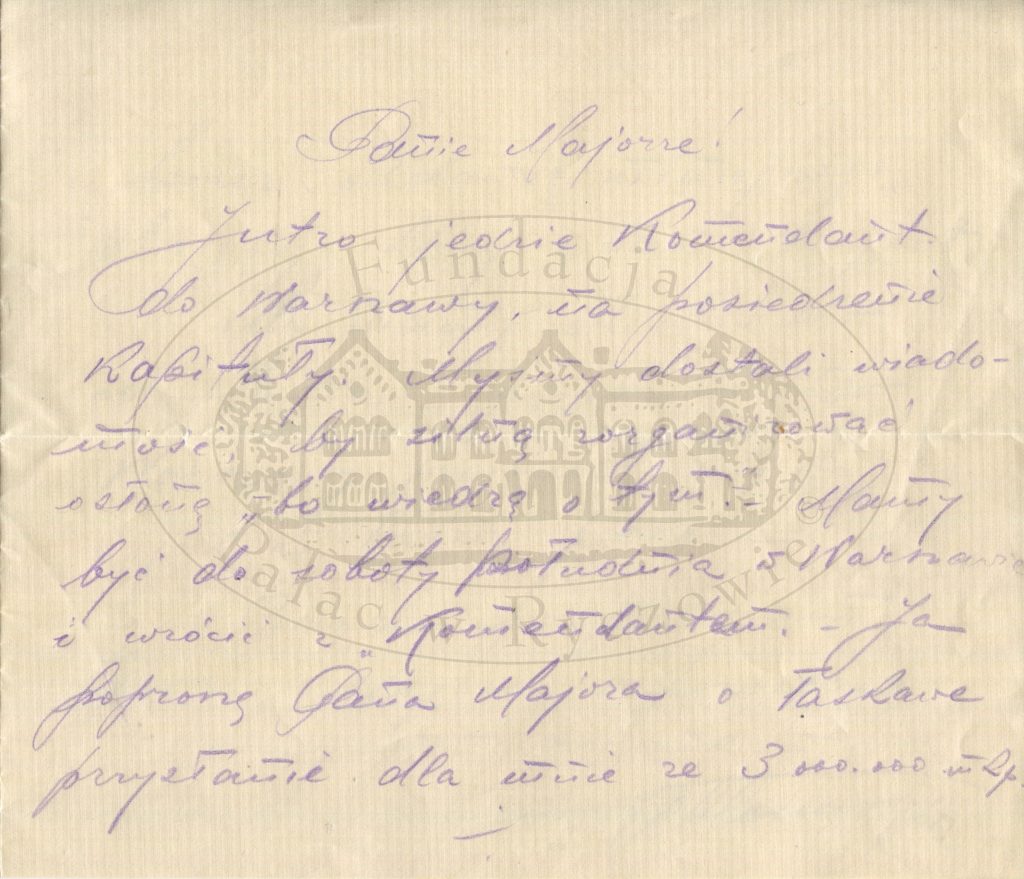 Panie Majorze!
Jutro jedzie Komendant
do Warszawy, na posiedzenie
Kapituły. Myśmy dostali wiado-
mość, by silną zorganizować
osłonę „bo wiedzą o tym". - Mamy
być do soboty południa w Warszawie
i wrócić z „Komendantem. - Ja
poproszę Pana Majora o łaskawe
przysłanie dla mnie ze 3 000.000 mkp.
Fundacja
Pałac w Ryszowie